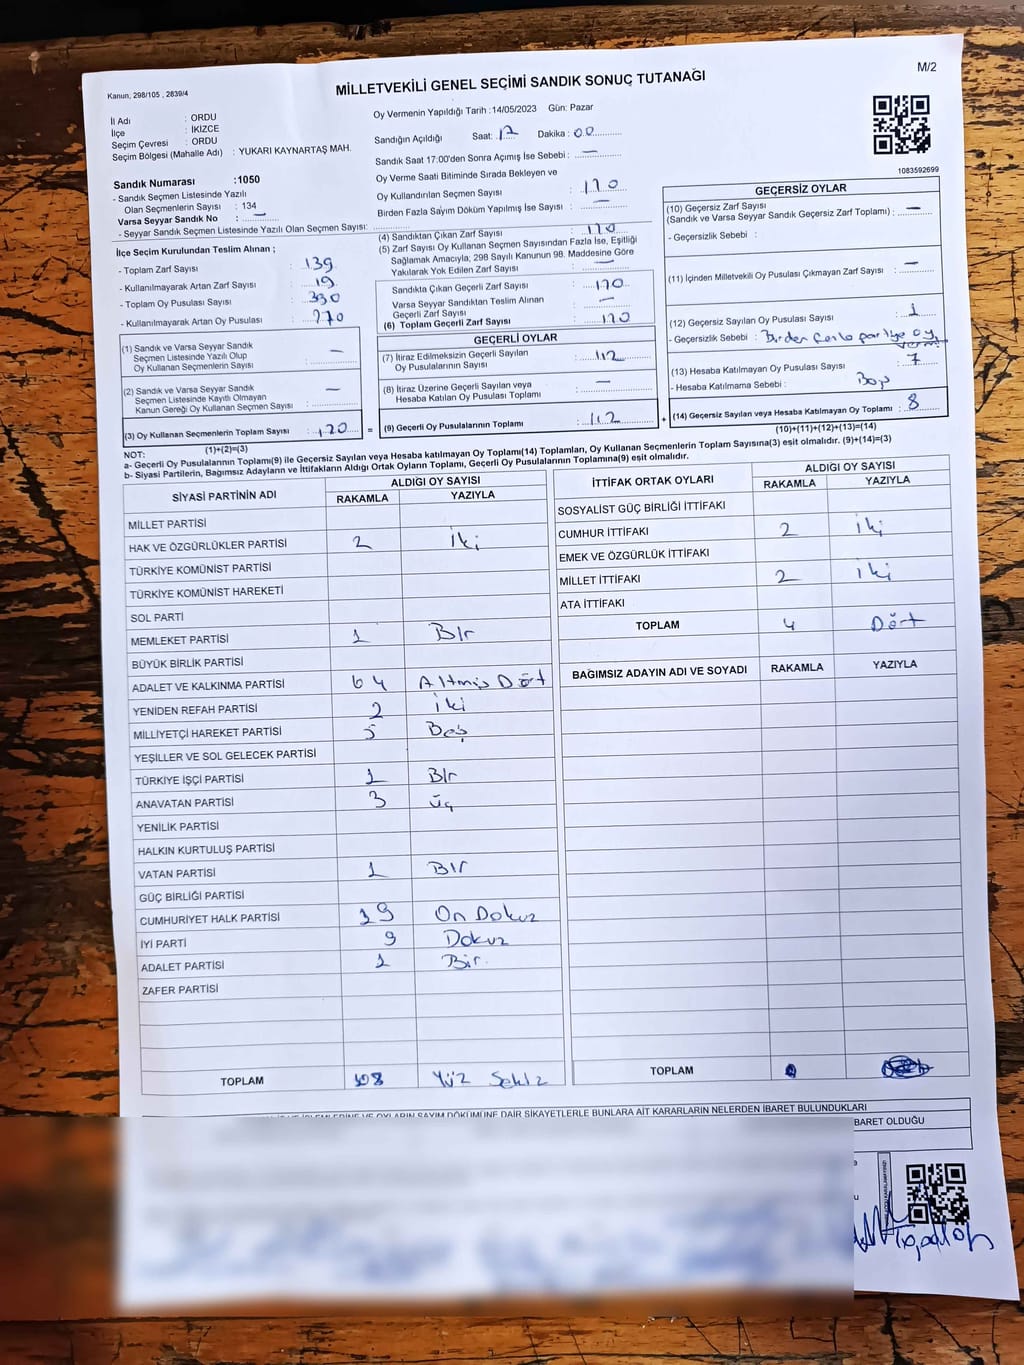 Kanun, 298/105 , 2839/4
MİLLETVEKİLİ GENEL SEÇİMİ SANDIK SONUÇ TUTANAĞI
M/2
İl Adı : ORDU
İlçe : İKİZCE
Seçim Çevresi : ORDU
Seçim Bölgesi (Mahalle Adı) : YUKARI KAYNARTAŞ MAH.
Sandık Numarası :1050
- Sandık Seçmen Listesinde Yazılı
Olan Seçmenlerin Sayısı : 134
Varsa Seyyar Sandık No : —
- Seyyar Sandık Seçmen Listesinde Yazılı Olan Seçmen Sayısı:
İlçe Seçim Kurulundan Teslim Alınan ;
- Toplam Zarf Sayısı : 139
- Kullanılmayarak Artan Zarf Sayısı : 19
- Toplam Oy Pusulası Sayısı : 390
- Kullanılmayarak Artan Oy Pusulası : 270
(1) Sandık ve Varsa Seyyar Sandık
Seçmen Listesinde Yazılı Olup
Oy Kullanan Seçmenlerin Sayısı : —
(2) Sandık ve Varsa Seyyar Sandık
Seçmen Listesinde Kayıtlı Olmayan
Kanun Gereği Oy Kullanan Seçmen Sayısı : —
(3) Oy Kullanan Seçmenlerin Toplam Sayısı : 120
(1)+(2)=(3)
Oy Vermenin Yapıldığı Tarih :14/05/2023 Gün: Pazar
Sandığın Açıldığı Saat: 17 Dakika : 00
Sandık Saat 17:00'den Sonra Açımış İse Sebebi : —
Oy Verme Saati Bitiminde Sırada Bekleyen ve
Oy Kullandırılan Seçmen Sayısı : 120
Birden Fazla Sayım Döküm Yapılmış İse Sayısı : —
(4) Sandıktan Çıkan Zarf Sayısı : 120
(5) Zarf Sayısı Oy Kullanan Seçmen Sayısından Fazla İse, Eşitliği
Sağlamak Amacıyla; 298 Sayılı Kanunun 98. Maddesine Göre
Yakılarak Yok Edilen Zarf Sayısı : —
Sandıkta Çıkan Geçerli Zarf Sayısı : 120
Varsa Seyyar Sandıktan Teslim Alınan
Geçerli Zarf Sayısı : —
(6) Toplam Geçerli Zarf Sayısı : 120
GEÇERLİ OYLAR
(7) İtiraz Edilmeksizin Geçerli Sayılan
Oy Pusulasının Sayısı : 112
(8) İtiraz Üzerine Geçerli Sayılan veya
Hesaba Katılan Oy Pusulası Toplamı : —
= (9) Geçerli Oy Pusulalarının Toplamı : 112
1083592699
GEÇERSİZ OYLAR
(10) Geçersiz Zarf Sayısı
(Sandık ve Varsa Seyyar Sandık Geçersiz Zarf Toplamı) : —
- Geçersizlik Sebebi :
(11) İçinden Milletvekili Oy Pusulası Çıkmayan Zarf Sayısı : —
(12) Geçersiz Sayılan Oy Pusulası Sayısı : 1
- Geçersizlik Sebebi : Birden fazla partiye oy
vermi
(13) Hesaba Katılmayan Oy Pusulası Sayısı : 7
- Hesaba Katılmama Sebebi : Boş
+ (14) Geçersiz Sayılan veya Hesaba Katılmayan Oy Toplamı : 8
(10)+(11)+(12)+(13)=(14)
NOT:
a- Geçerli Oy Pusulalarının Toplamı(9) ile Geçersiz Sayılan veya Hesaba katılmayan Oy Toplamı(14) Toplamları, Oy Kullanan Seçmenlerin Toplam Sayısına(3) eşit olmalıdır. (9)+(14)=(3)
b- Siyasi Partilerin, Bağımsız Adayların ve İttifakların Aldığı Ortak Oyların Toplamı, Geçerli Oy Pusulalarının Toplamına(9) eşit olmalıdır.
SİYASİ PARTİNİN ADI ALDIĞI OY SAYISI
RAKAMLA YAZIYLA
MİLLET PARTİSİ
HAK VE ÖZGÜRLÜKLER PARTİSİ 2 İki
TÜRKİYE KOMÜNİST PARTİSİ
TÜRKİYE KOMÜNİST HAREKETİ
SOL PARTİ
MEMLEKET PARTİSİ 1 Bir
BÜYÜK BİRLİK PARTİSİ
ADALET VE KALKINMA PARTİSİ 64 Altmış Dört
YENİDEN REFAH PARTİSİ 2 İki
MİLLİYETÇİ HAREKET PARTİSİ 5 Beş
YEŞİLLER VE SOL GELECEK PARTİSİ
TÜRKİYE İŞÇİ PARTİSİ 1 Bir
ANAVATAN PARTİSİ 3 üç
YENİLİK PARTİSİ
HALKIN KURTULUŞ PARTİSİ
VATAN PARTİSİ 1 Bir
GÜÇ BİRLİĞİ PARTİSİ
CUMHURİYET HALK PARTİSİ 19 On Dokuz
İYİ PARTİ 9 Dokuz
ADALET PARTİSİ 1 Bir
ZAFER PARTİSİ
TOPLAM 108 Yüz Sekiz
İTTİFAK ORTAK OYLARI ALDIĞI OY SAYISI
RAKAMLA YAZIYLA
SOSYALİST GÜÇ BİRLİĞİ İTTİFAKI
CUMHUR İTTİFAKI 2 İki
EMEK VE ÖZGÜRLÜK İTTİFAKI
MİLLET İTTİFAKI 2 iki
ATA İTTİFAKI
TOPLAM 4 Dört
BAĞIMSIZ ADAYIN ADI VE SOYADI RAKAMLA YAZIYLA
TOPLAM
DÖKÜMÜNE DAİR ŞİKAYETLERLE BUNLARA AİT KARARLARIN NELERDEN İBARET BULUNDUKLARI
BARET OLDUĞU